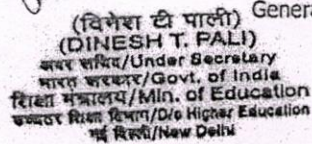 General
(दिनेश टी पाली)
(DINESH T. PALI)
अवर सचिव/Under Secretary
भारत सरकार/Govt. of India
शिक्षा मंत्रालय/Min. of Education
उच्चतर शिक्षा विभाग/D/o Higher Education
नई दिल्ली/New Delhi